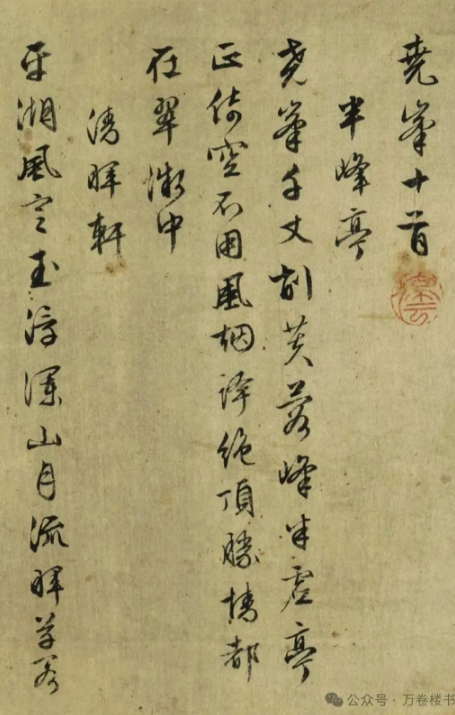 堯峯十首
半峰亭
堯峯千丈削芙蓉峰半虛亭
正倚空不用風烟誇絕頂勝情都
在翠微中
清暉軒
平湖風定玉浮瀾山月流暉草閣
公众号·万卷楼书